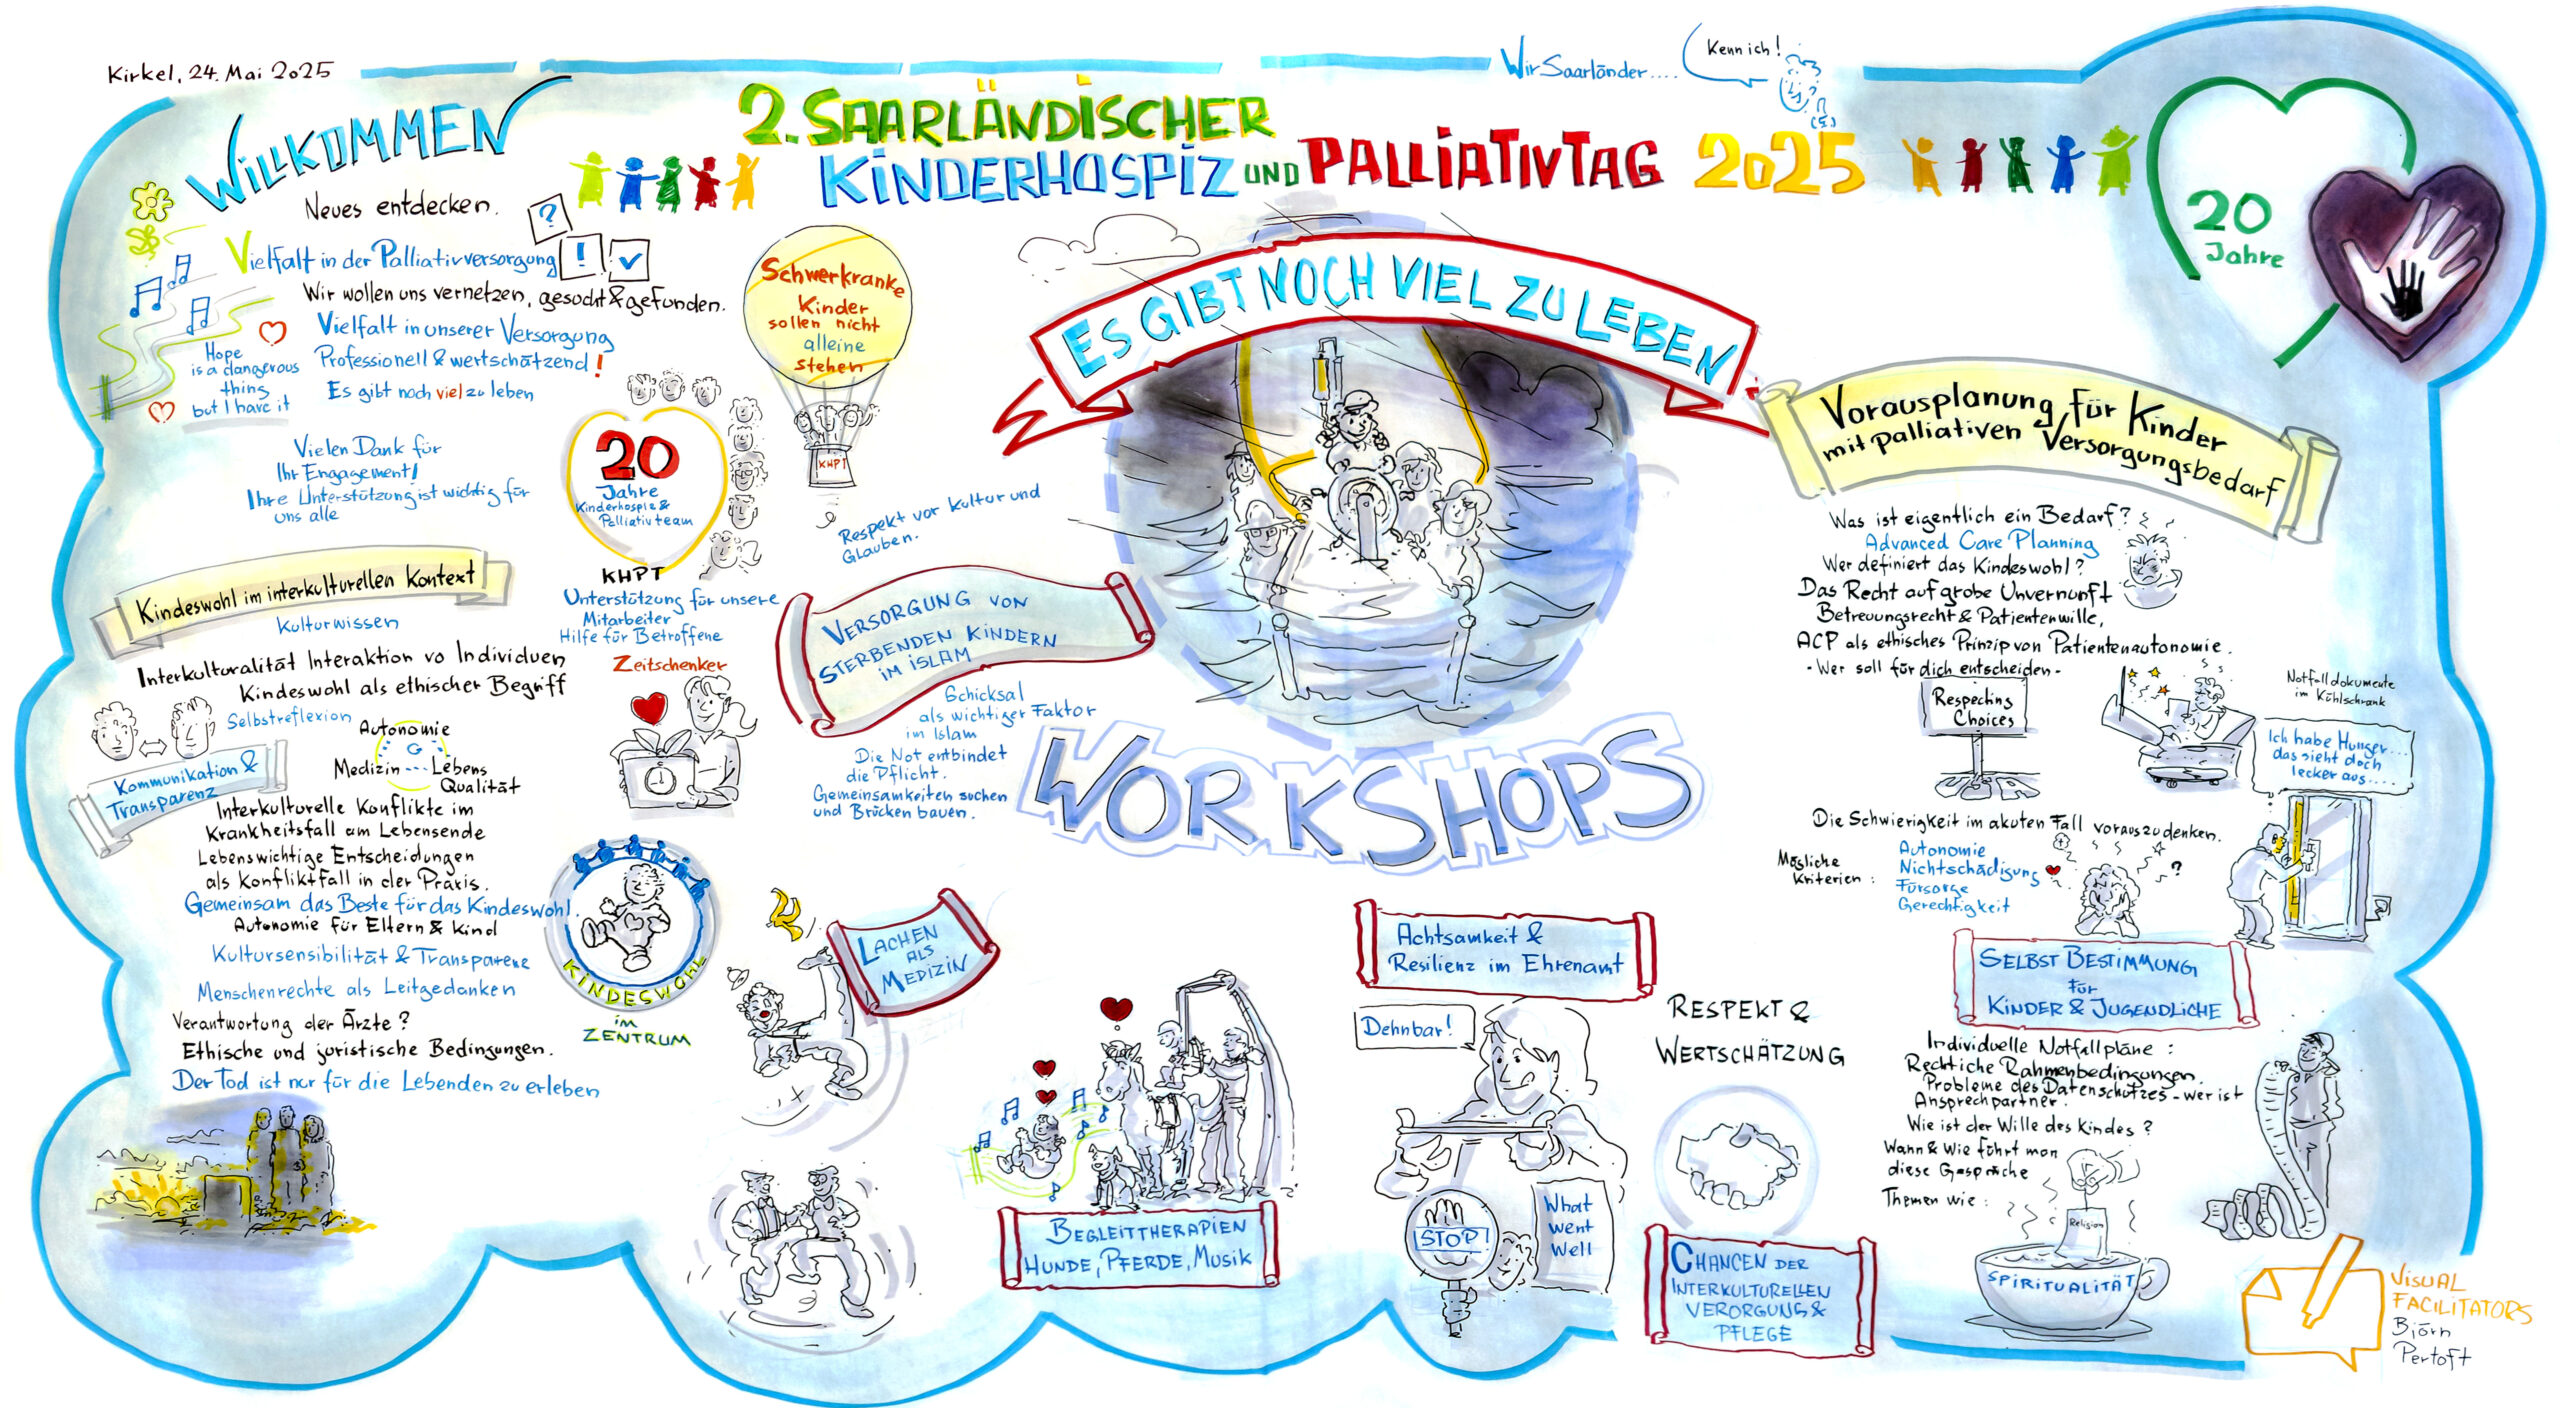 Kirkel, 24. Mai 2025
WILLKOMMEN
2. SAARLÄNDISCHER
KINDERHOSPIZ UND PALLIATIVTAG 2025
Wir Saarländer....
Kenn ich!
20
Jahre
Neues entdecken.
?
!
Vielfalt in der Palliativversorgung
Wir wollen uns vernetzen, gesucht & gefunden.
Vielfalt in unserer Versorgung
Professionell & wertschätzend!
Es gibt noch viel zu leben
Hope
is a dangerous
thing
but I have it
Vielen Dank für
Ihr Engagement!
Ihre Unterstützung ist wichtig für
uns alle
Schwerkranke
Kinder
sollen nicht
alleine
stehen
KHPT
20
Jahre
Kinderhospiz &
Palliativteam
KHPT
Unterstützung für unsere
Mitarbeiter
Hilfe für Betroffene
Zeitschenker
Kindeswohl im interkulturellen Kontext
Kulturwissen
Interkulturalität Interaktion vo Individuen
Kindeswohl als ethischer Begriff
Selbstreflexion
Autonomie
Medizin --- Lebens
Qualität
Kommunikation &
Transparenz
Interkulturelle Konflikte im
Krankheitsfall am Lebensende
Lebenswichtige Entscheidungen
als Konfliktfall in der Praxis.
Gemeinsam das Beste für das Kindeswohl.
Autonomie für Eltern & Kind
Kultursensibilität & Transparenz
Menschenrechte als Leitgedanken
Verantwortung der Ärzte?
Ethische und juristische Bedingungen.
Der Tod ist nur für die Lebenden zu erleben
KINDESWOHL
im
ZENTRUM
ES GIBT NOCH VIEL ZU LEBEN
Respekt vor Kultur und
Glauben.
VERSORGUNG VON
STERBENDEN KINDERN
IM ISLAM
Schicksal
als wichtiger Faktor
im Islam
Die Not entbindet
die Pflicht.
Gemeinsamkeiten suchen
und Brücken bauen.
WORKSHOPS
LACHEN
ALS
MEDIZIN
BEGLEITTHERAPIEN
HUNDE, PFERDE, MUSIK
Achtsamkeit &
Resilienz im Ehrenamt
Dehnbar!
STOP!
What
went
well
RESPEKT &
WERTSCHÄTZUNG
CHANCEN DER
INTERKULTURELLEN
VERORGUNG &
PFLEGE
Vorausplanung für Kinder
mit palliativen Versorgungsbedarf
Was ist eigentlich ein Bedarf?
Advanced Care Planning
Wer definiert das Kindeswohl?
Das Recht auf grobe Unvernunft
Betreuungsrecht & Patientenwille,
ACP als ethisches Prinzip von Patientenautonomie.
- Wer soll für dich entscheiden -
Respecting
Choices
Notfalldokumente
im Kühlschrank
Ich habe Hunger...
das sieht doch
lecker aus....
Die Schwierigkeit im akuten Fall vorauszudenken.
Mögliche
Kriterien:
Autonomie
Nichtschädigung
Fürsorge
Gerechtigkeit
?
SELBST BESTIMMUNG
für
KINDER & JUGENDLICHE
Individuelle Notfallpläne:
Rechtliche Rahmenbedingungen.
Probleme des Datenschutzes - wer ist
Ansprechpartner.
Wie ist der Wille des Kindes?
Wann & Wie führt man
diese Gespräche
Themen wie:
Religion
SPIRITUALITÄT
VISUAL
FACILITATORS
Björn
Pertoft